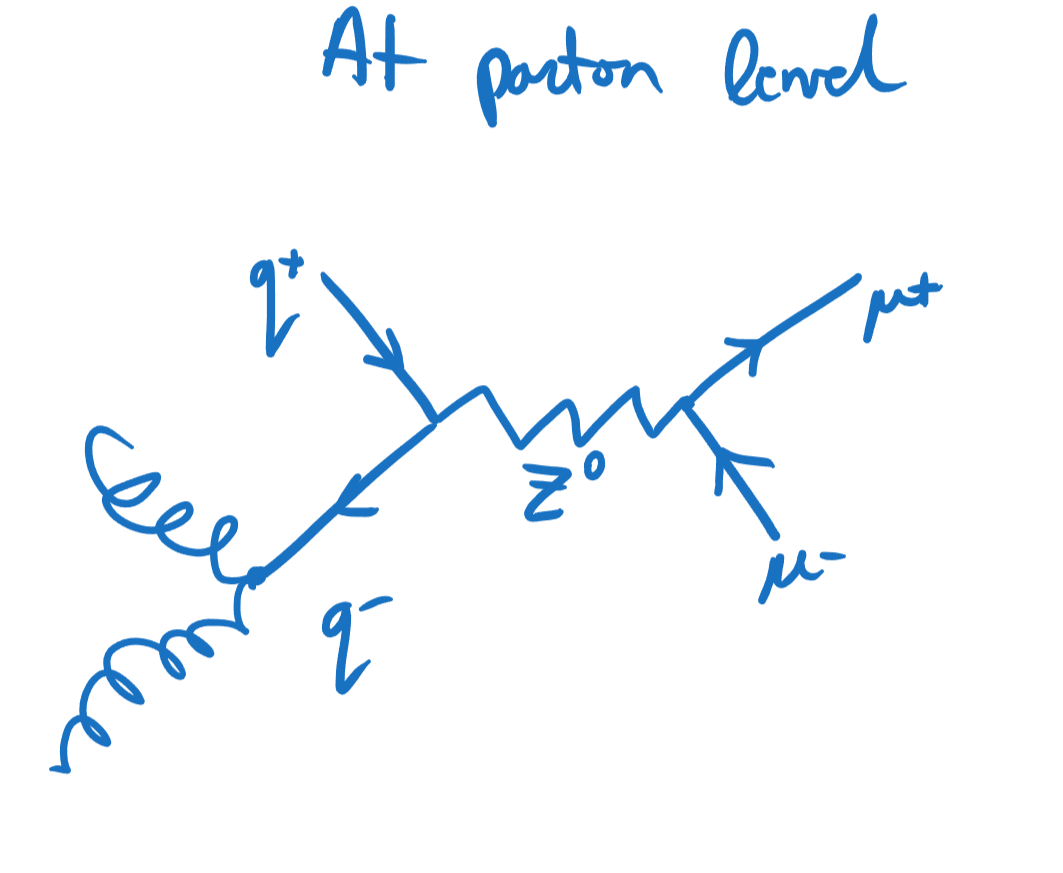 At parton level
q+
μ+
Z0
μ-
q-